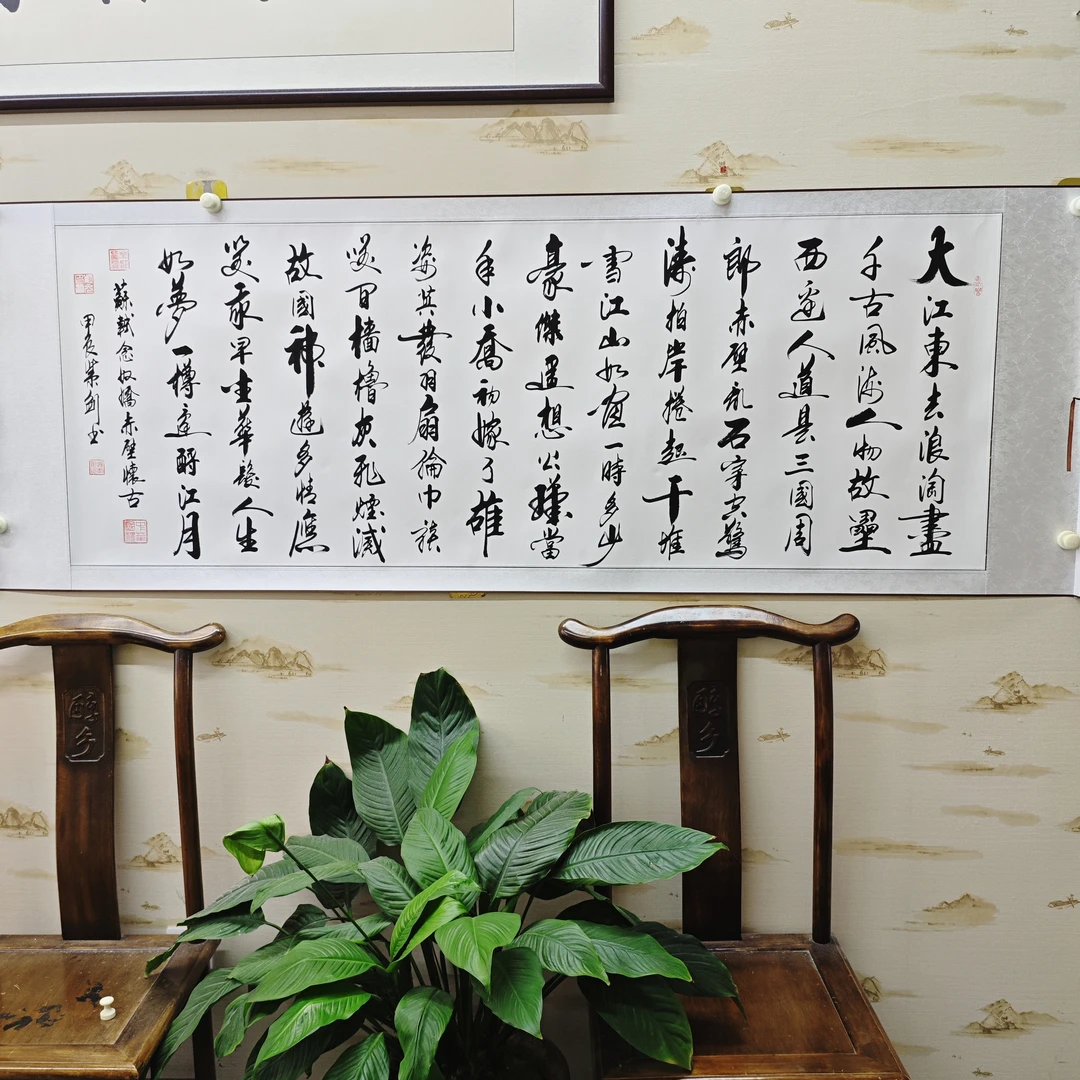 大江東去浪淘盡
千古風流人物故壘
西邊人道是三國周
郎赤壁亂石穿空驚
濤拍岸捲起千堆
雪江山如畫一時多少
豪傑遙想公瑾當
年小喬初嫁了雄
姿英發羽扇綸巾談
笑間檣櫓灰飛煙滅
故國神遊多情應
笑我早生華髮人生
如夢一樽還酹江月
蘇軾念奴嬌赤壁懷古
甲辰